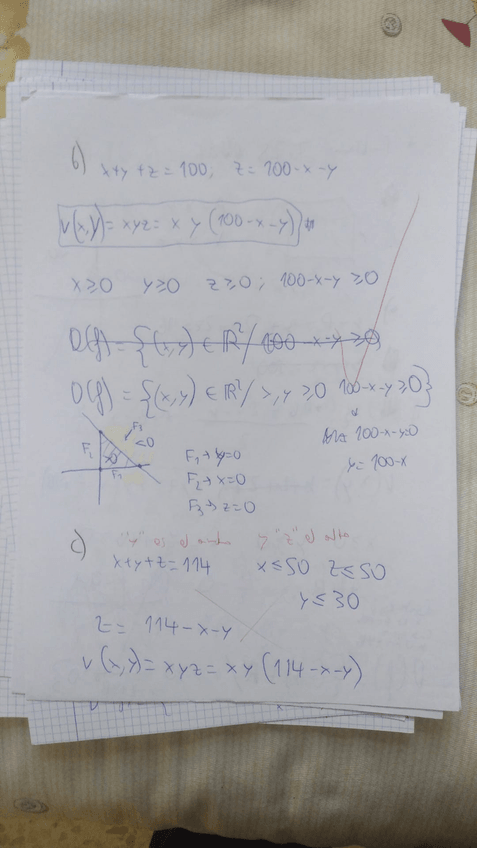 b) x+y+z=100, z=100-x-y
V(x,y)= xyz= x y (100-x-y)
x≥0 y≥0 z≥0; 100-x-y ≥0
D(f)={(x,y) ∈ ℝ²/ 100-x-y ≥0
D(f) = {(x,y) ∈ ℝ²/ x,y ≥0 100-x-y≥0}
100-x-y=0
y=100-x
F₃
<0
F₂
>0
F₁
F₁→y=0
F₂→x=0
F₃→z=0
"y" es el ancho y "z" el alto
c) x+y+z=114 x≤50 z≤50
y≤30
z= 114-x-y
V(x,y)= xyz= xy(114-x-y)